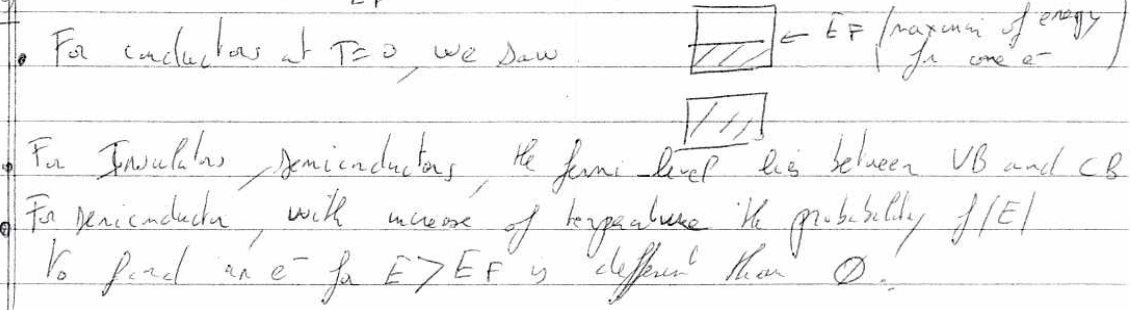 EF
• For conductors at T=0, we saw ← EF (maximum of energy
for one e-)
• For Insulators, semiconductors, the fermi-level lies between VB and CB
• For semiconductor, with increase of temperature the probability f(E)
to find an e- for E>EF is different than 0.